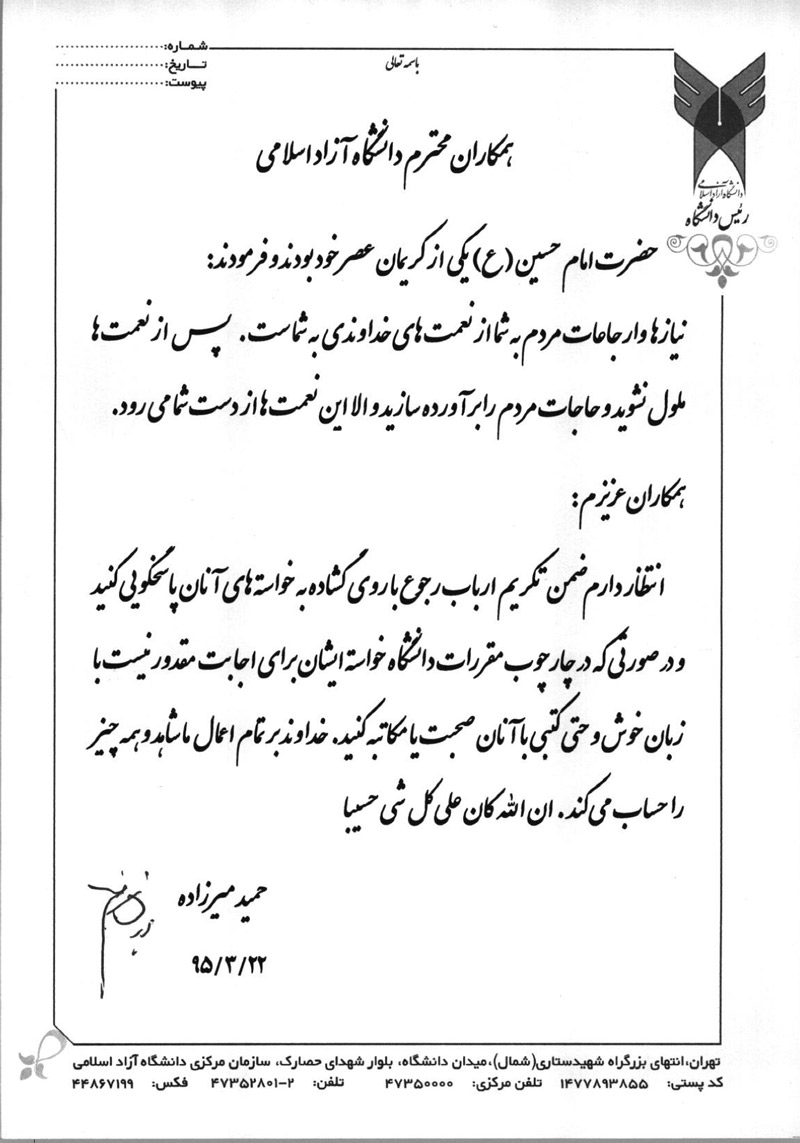 شماره:
تاریخ:
پیوست:
باسمه تعالی
دانشگاه آزاد اسلامی
رئیس دانشگاه
همکاران محترم دانشگاه آزاد اسلامی
حضرت امام حسین (ع) یکی از کریمان عصر خود بودند و فرمودند:
نیازها و ارجاعات مردم به شما از نعمت های خداوندی به شماست. پس از نعمت ها
ملول نشوید و حاجات مردم را برآورده سازید و الا این نعمت ها از دست شما می رود.
همکاران عزیزم:
انتظار دارم ضمن تکریم ارباب رجوع با روی گشاده به خواسته های آنان پاسخگویی کنید
و در صورتی که در چارچوب مقررات دانشگاه خواسته ایشان برای اجابت مقدور نیست با
زبان خوش و حتی کتبی با آنان صحبت یا مکاتبه کنید. خداوند بر تمام اعمال ما شاهد و همه چیز
را حساب می کند. ان الله کان علی کل شی حسیبا
حمید میرزاده
۹۵/۳/۲۲
تهران، انتهای بزرگراه شهیدستاری(شمال)، میدان دانشگاه، بلوار شهدای حصارک، سازمان مرکزی دانشگاه آزاد اسلامی
کد پستی: ۱۴۷۷۸۹۳۸۵۵ تلفن مرکزی: ۴۷۳۵۰۰۰۰ تلفن: ۴۷۳۵۲۸۰۱-۲ فکس: ۴۴۸۶۷۱۹۹